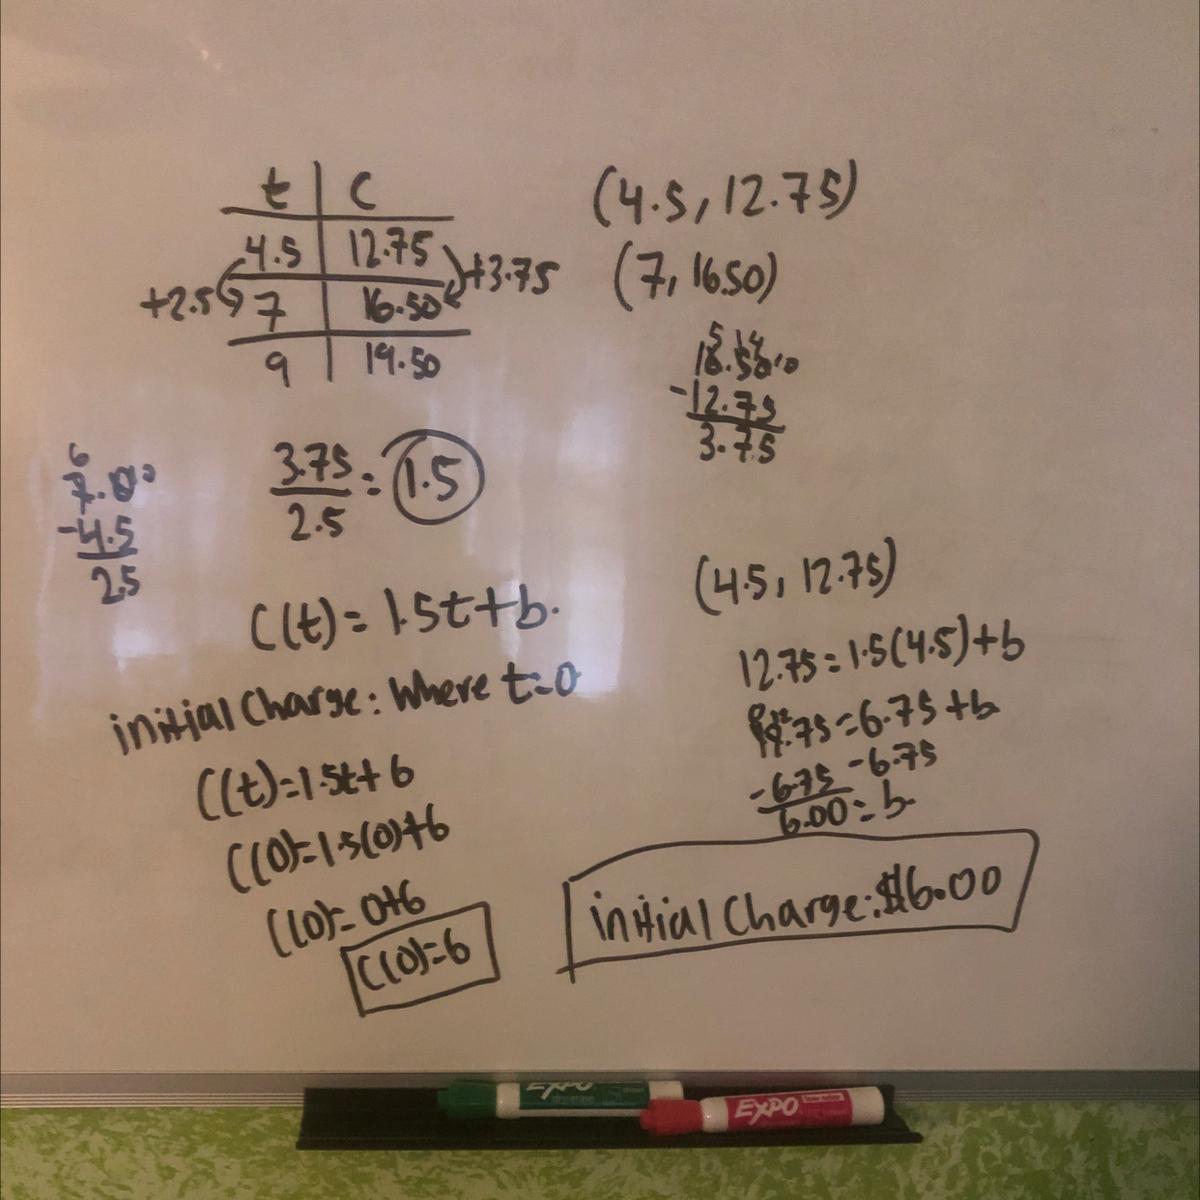 t C
4.5 12.75
+3.75
+2.5 7 16.50
9 19.50
(4.5, 12.75)
(7, 16.50)
5 14
16.50 10
-12.75
3.75
6
7.0 10
-4.5
2.5
3.75
2.5
= 1.5
C(t)= 1.5t+b.
initial Charge: Where t=0
C(t)=1.5t+6
C(0)=1.5(0)+6
C(0)= 0+6
C(0)=6
(4.5, 12.75)
12.75=1.5(4.5)+b
12.75=6.75+b
-6.75 -6.75
6.00=b.
initial Charge: $6.00
EXPO
dry erase
EXPO